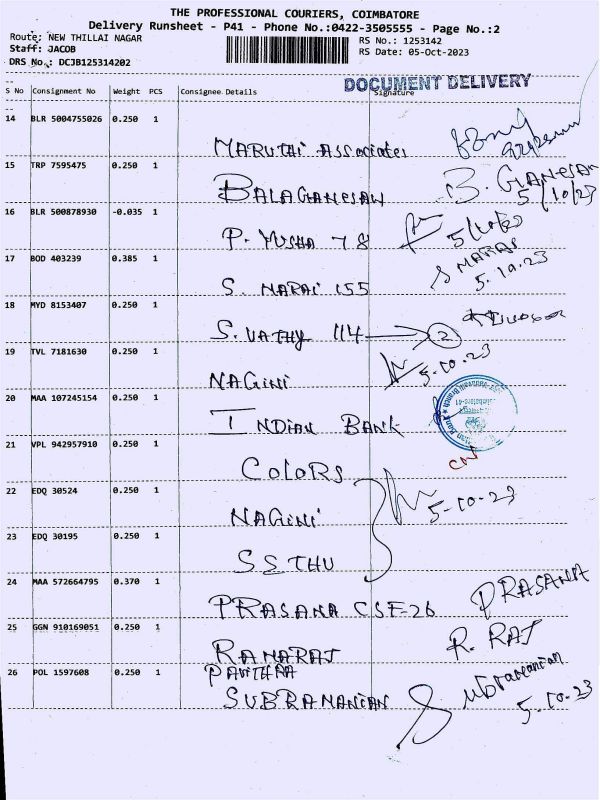 THE PROFESSIONAL COURIERS, COIMBATORE
Delivery Runsheet - P41 - Phone No.:0422-3505555 - Page No.:2
Route: NEW THILLAI NAGAR
RS No.: 1253142
Staff: JACOB
RS Date: 05-Oct-2023
DRS No.: DCJB125314202
DOCUMENT DELIVERY
S No Consignment No Weight PCS Consignee Details Signature
14 BLR 5004755026 0.250 1
MARUTHI Associates
15 TRP 7595475 0.250 1
BALAGANESAN B. GANESAN
5/10/23
16 BLR 500878930 -0.035 1
P. YUSHA 78 5/10/23
17 BOD 403239 0.385 1
S. NARAI 155 5.10.23
18 MYD 8153407 0.250 1
S. VATHY 114 2
19 TVL 7181630 0.250 1
NAGINI 5-10-23
20 MAA 107245154 0.250 1
INDIAN BANK
21 VPL 942957910 0.250 1
COLORS
22 EDQ 30524 0.250 1
NAGINI 5-10-23
23 EDQ 30195 0.250 1
SSTHU
24 MAA 572664795 0.370 1
PRASANA CSF-26 PRASANA
25 GGN 910169051 0.250 1
RAMARAJ R. RAJ
26 POL 1597608 0.250 1
PAVITHRA
SUBRAMANIAN Subramanian
5-10-23